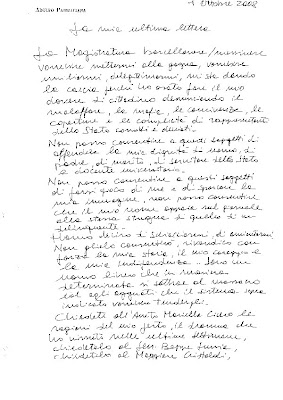 ADOLFO PARMALIANA
1 Ottobre 2008
La mia ultima lettera
La Magistratura barcellonese/messinese
vorrebbe mettermi alla gogna, vorrebbe
umiliarmi, delegittimarmi, mi sta dando
la caccia perché ho osato fare il mio
dovere di cittadino denunciando il
malaffare, la mafia, le connivenze, le
coperture e le complicità di rappresentanti
dello Stato corrotti e deviati.
Non posso consentire a questi soggetti di
offendere la mia dignità di uomo, di
padre, di marito, di servitore dello Stato
e docente universitario.
Non posso consentire a questi soggetti
di farsi gioco di me e di sporcare la
mia immagine, non posso consentire
che il mio nome appaia sul giornale
alla stessa stregua di quello di un
delinquente.
Hanno deciso di schiacciarmi, di annientarmi.
Non glielo consentirò, rivendico con
forza la mia storia, il mio coraggio e
la mia indipendenza. Sono un
uomo libero che in maniera
determinata si sottrae al massacro
ed agli agguati che il sistema
vorrebbe tendergli.
Chiedete all'Avv.to Mariella Cicero le
ragioni del mio gesto, il dramma che
ho vissuto nelle ultime settimane,
chiedetelo al Sen. Beppe Lumia,
chiedetelo al Maggiore Cristaldi,